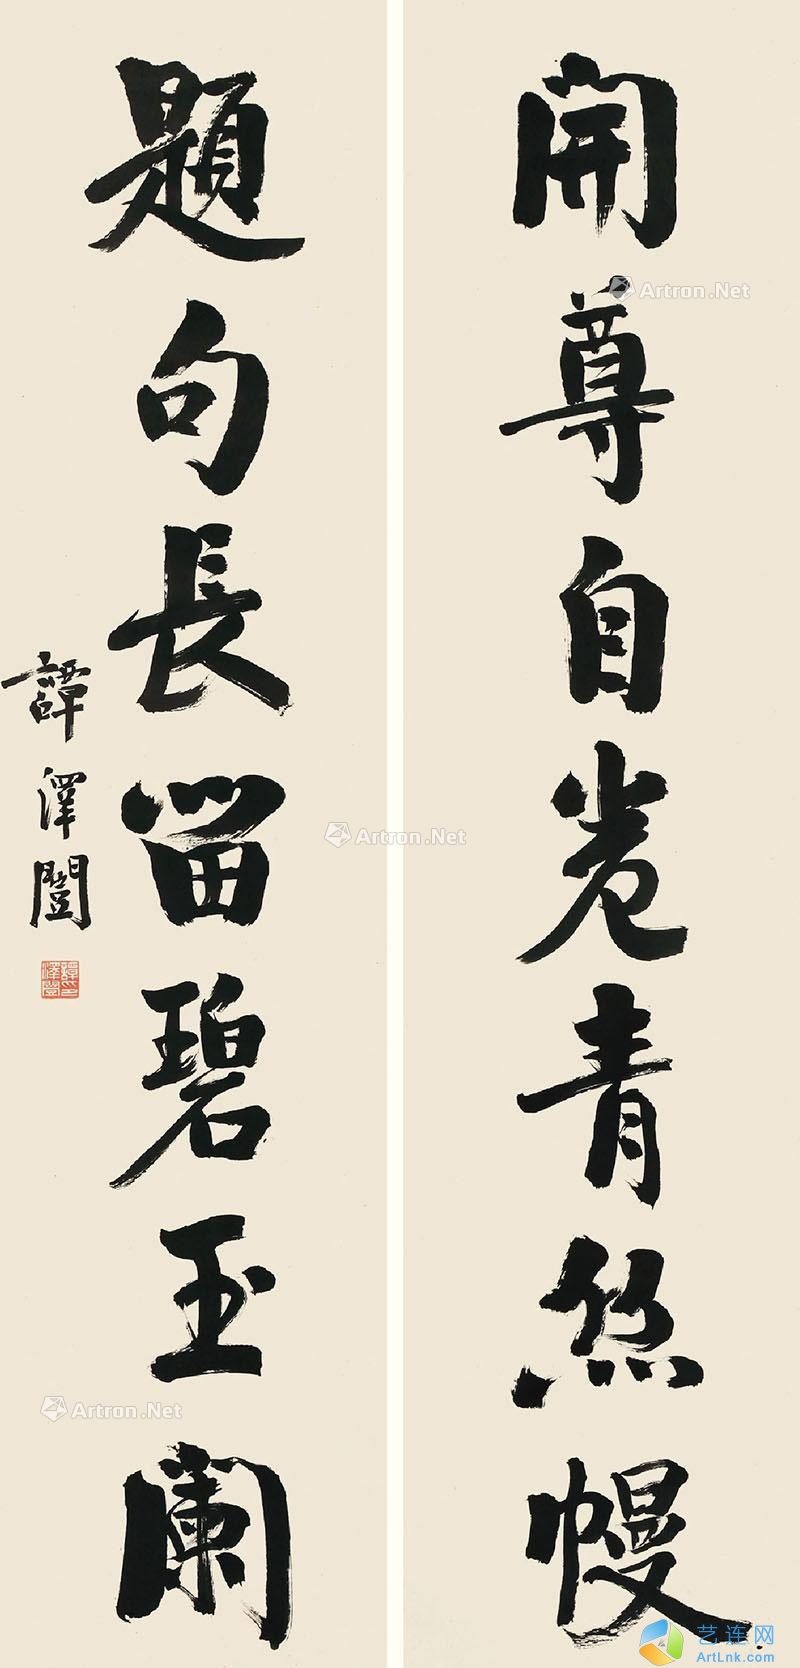 開尊自卷青絲幔
題句長留碧玉闌
譚澤闓
譚澤闓印
Artron.Net
Artron.Net
Artron.Net
艺连网
ArtLnk.com